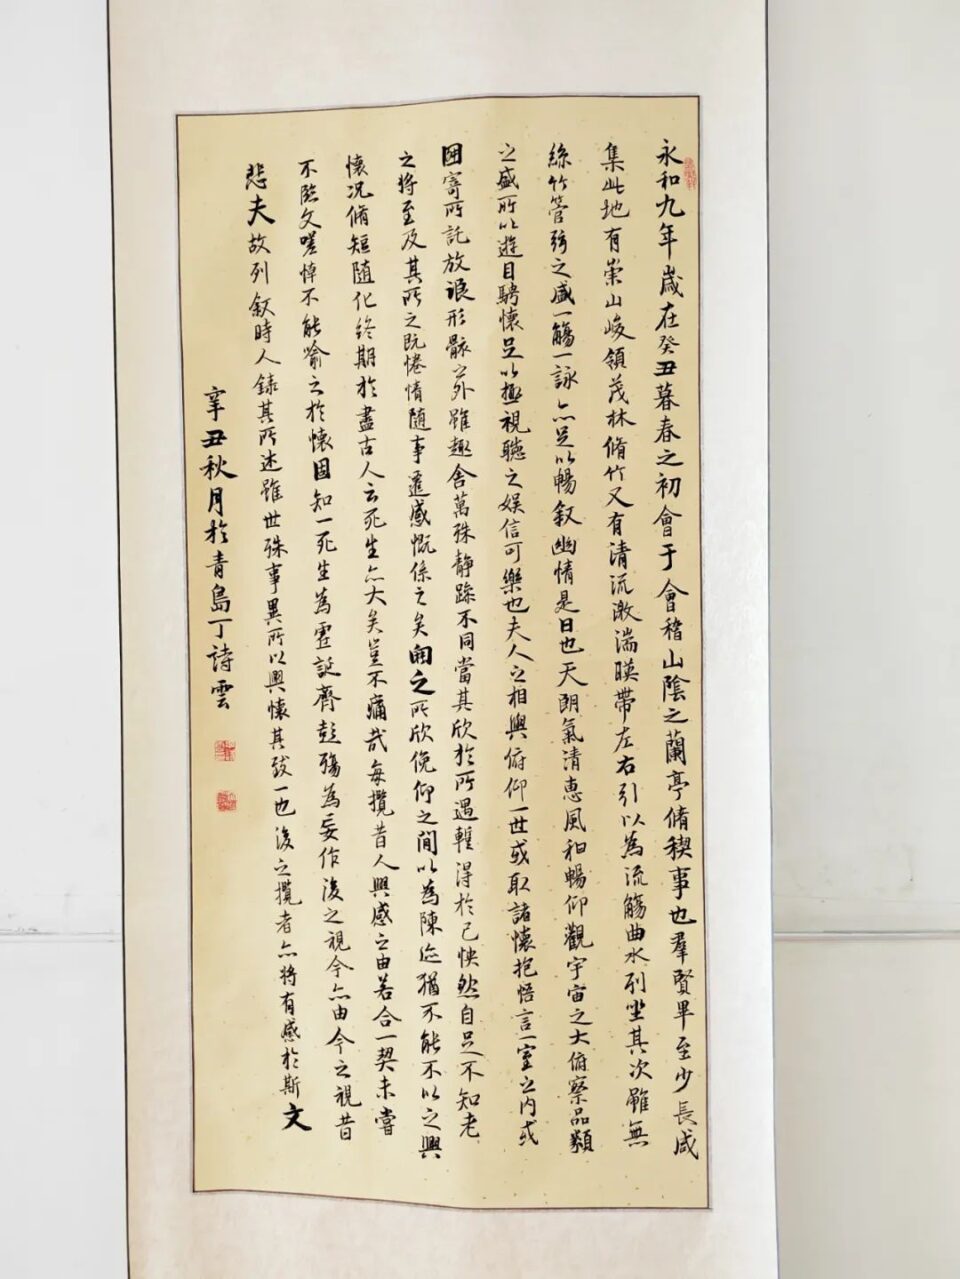 永和九年歲在癸丑暮春之初會于會稽山陰之蘭亭脩稧事也羣賢畢至少長咸
集此地有崇山峻領茂林脩竹又有清流激湍暎帶左右引以為流觴曲水列坐其次雖無
絲竹管弦之盛一觴一詠亦足以暢叙幽情是日也天朗氣清惠風和暢仰觀宇宙之大俯察品類
之盛所以遊目騁懷足以極視聽之娱信可樂也夫人之相與俯仰一世或取諸懷抱悟言一室之内或
因寄所託放浪形骸之外雖趣舍萬殊静躁不同當其欣於所遇蹔得於己怏然自足不知老
之將至及其所之既惓情隨事遷感慨係之矣向之所欣俛仰之間以為陳迹猶不能不以之興
懷况脩短隨化終期於盡古人云死生亦大矣豈不痛哉每攬昔人興感之由若合一契未嘗
不臨文嗟悼不能喻之於懷固知一死生為虛誕齊彭殤為妄作後之視今亦由今之視昔
悲夫故列叙時人録其所述雖世殊事異所以興懷其致一也後之攬者亦將有感於斯文
辛丑秋月於青島丁詩雲